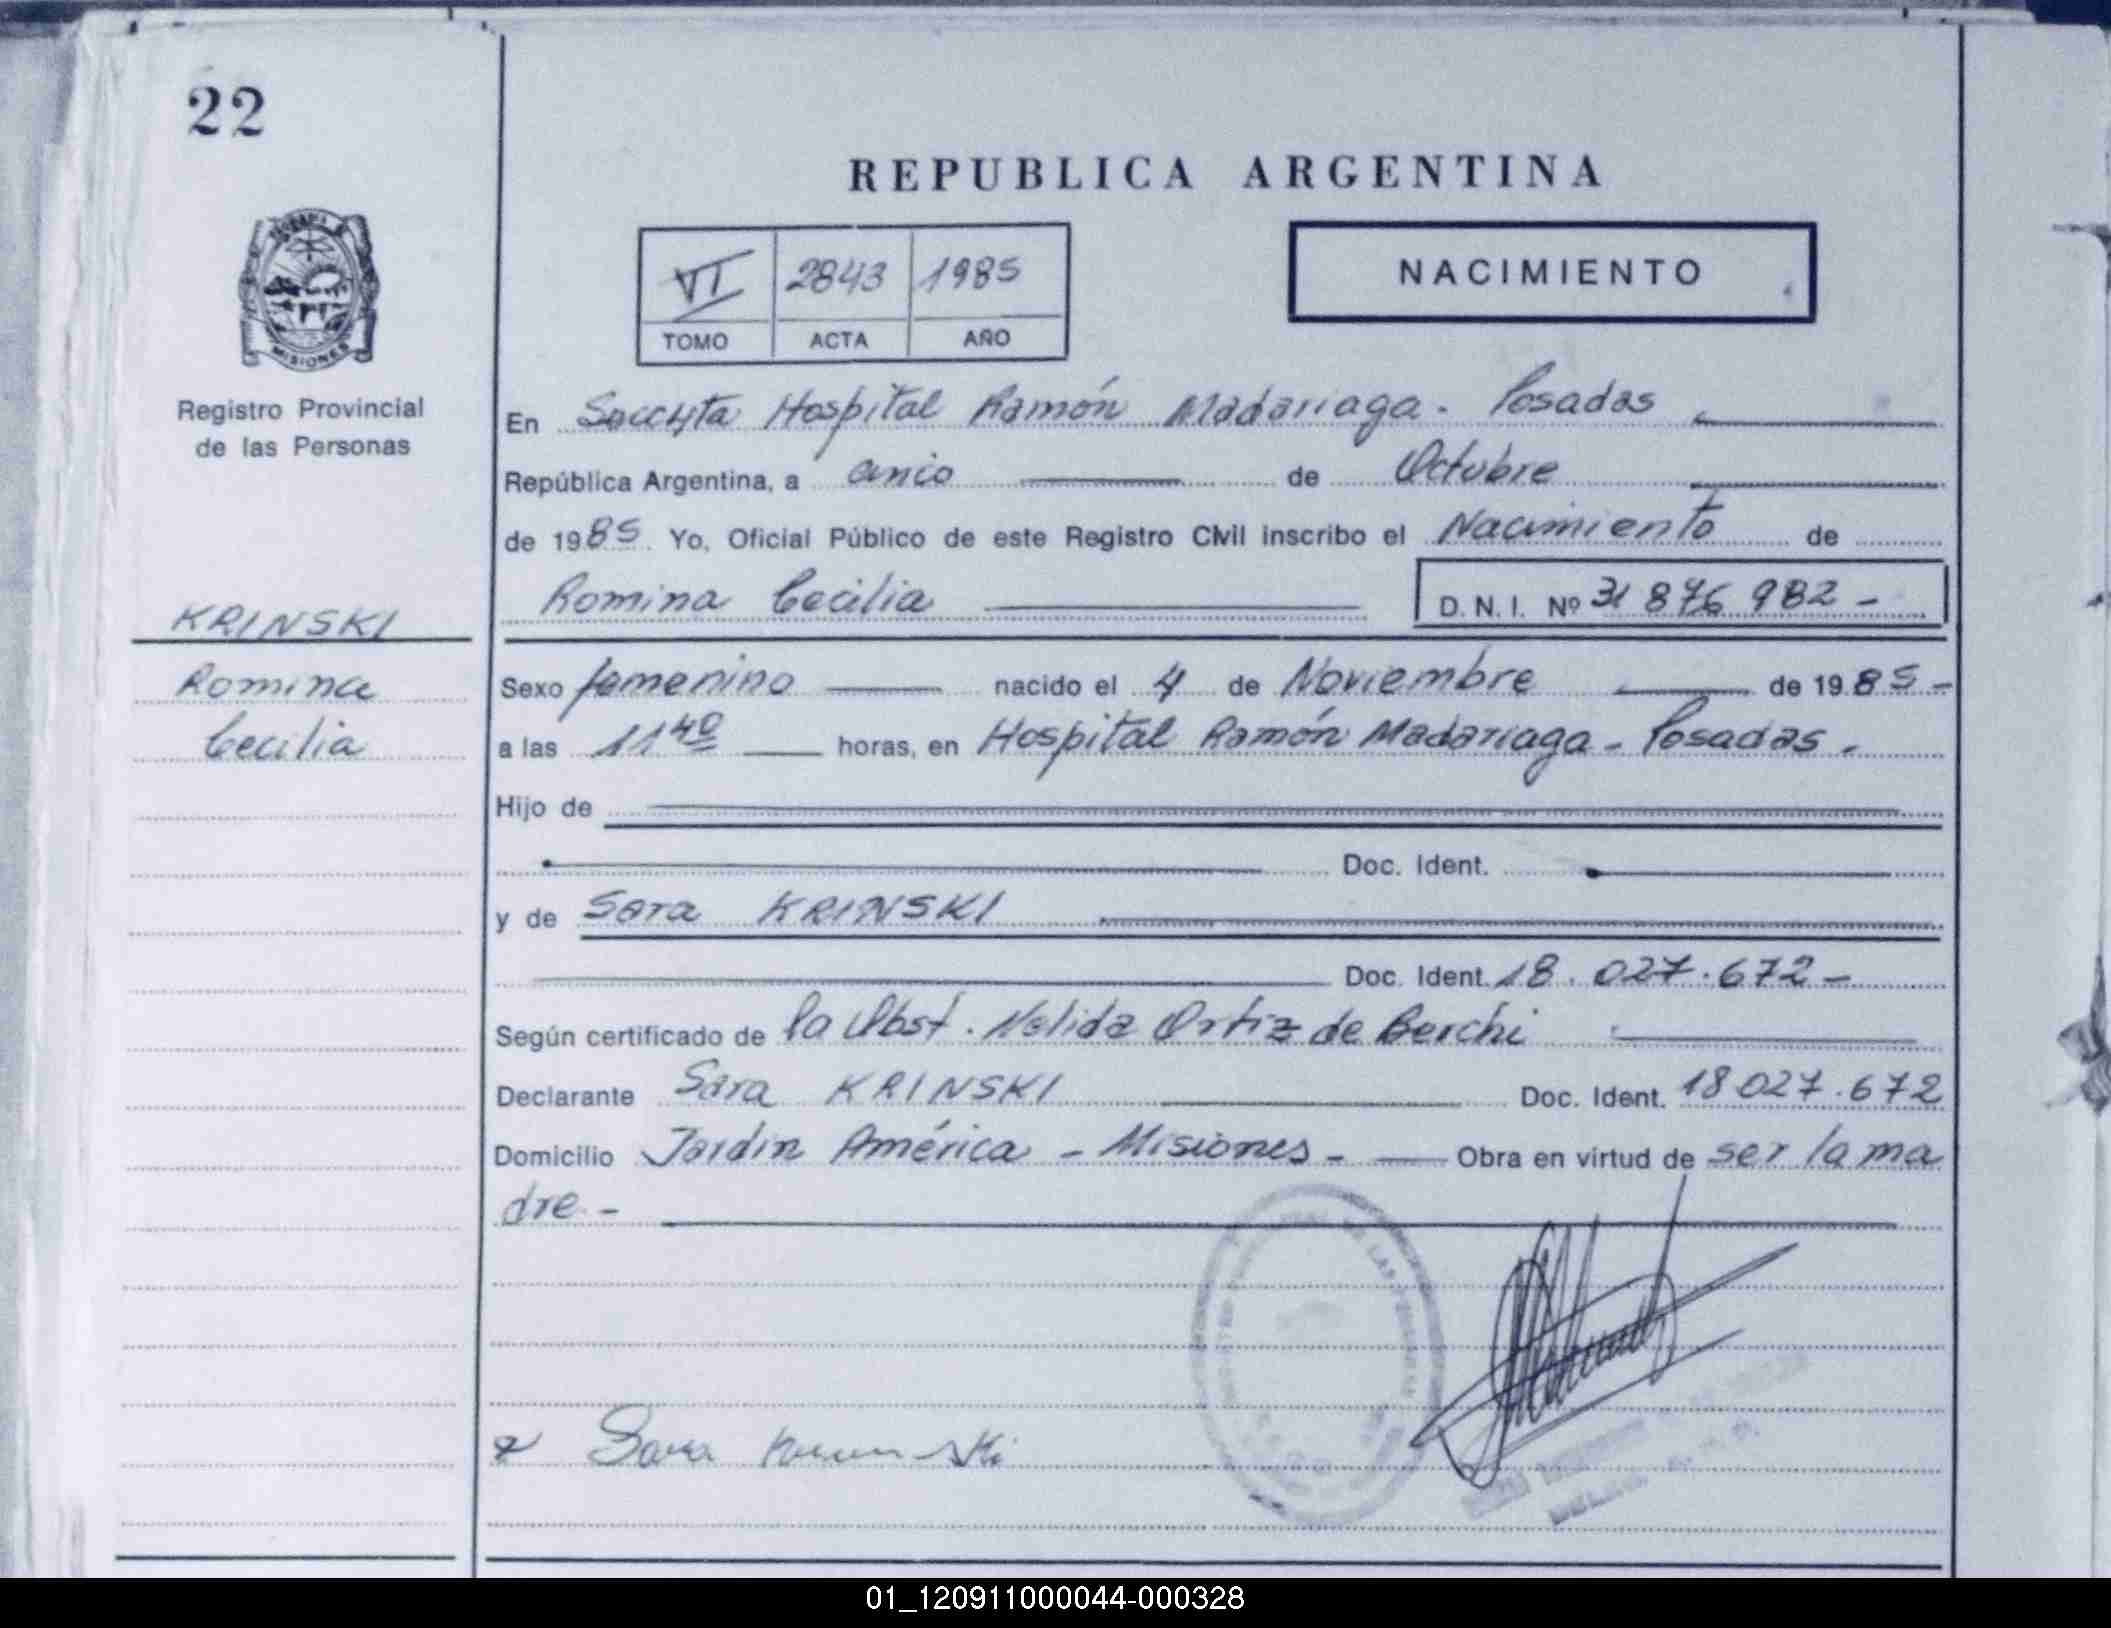 22
REPUBLICA ARGENTINA
VI 2843 1985
TOMO ACTA AÑO
NACIMIENTO
MISIONES
Registro Provincial
de las Personas
En Seccyta Hospital Ramón Madariaga - Posadas
República Argentina, a cinco de Octubre
de 1985 Yo, Oficial Público de este Registro Civil inscribo el Nacimiento de
Romina Cecilia D.N.I. Nº 31 876 982 -
KRINSKI
Romina
Cecilia
Sexo femenino nacido el 4 de Noviembre de 1985-
a las 11 40 horas, en Hospital Ramón Madariaga - Posadas -
Hijo de
Doc. Ident.
y de Sara KRINSKI
Doc. Ident. 18.027.672-
Según certificado de la Obst. Nelida Ortiz de Berchi
Declarante Sara KRINSKI Doc. Ident. 18 027.672
Domicilio Jardin América - Misiones - Obra en virtud de ser la ma
dre -
Sara
01_120911000044-000328